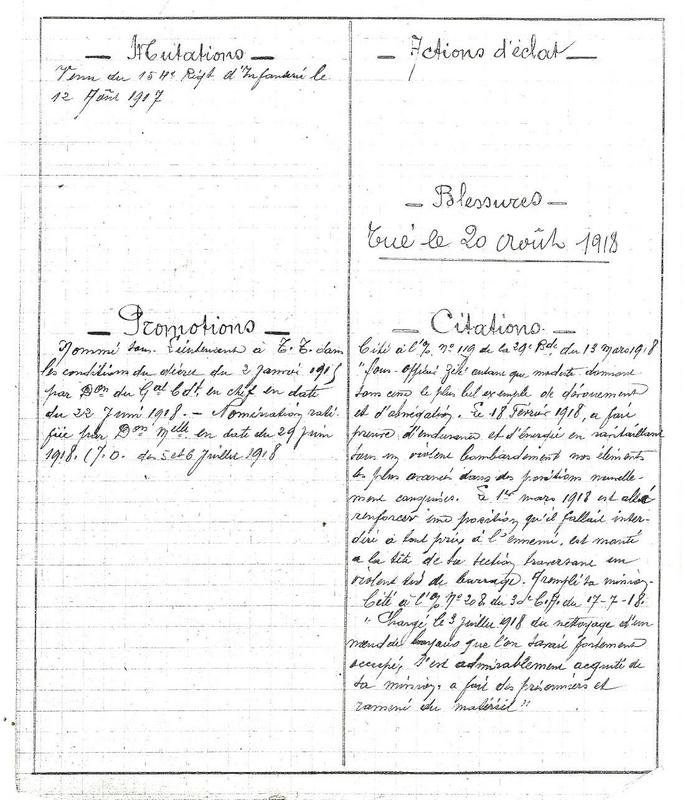 Mutations
Venu du 154e Regt d'Infanterie le
12 Août 1917
Promotions
Nommé sous. Lieutenant à T. T. dans
les conditions du décret du 2 Janvier 1915
par Don du Gal Cdt en chef en date
du 22 Juin 1918. - Nomination rati-
fiée par Don Melle en date du 29 juin
1918. (J.O. des 5 et 6 Juillet 1918
Actions d'éclat
Blessures
Tué le 20 Août 1918
Citations.
Cité à l'O/. No 119 de la 29e Bde du 13 Mars 1918
"Sous-officier zélé autant que modeste donnant
sans cesse le plus bel exemple de dévouement
et d'abnégation. Le 18 Février 1918, a fait
preuve d'endurance et d'énergie en ravitaillant
sous un violent bombardement nos éléments
les plus avancés dans des positions nouvelle-
ment conquises. Le 1er mars 1918 est allé
renforcer une position qu'il fallait inter-
dire à tout prix à l'ennemi, est monté
à la tête de sa section traversant un
violent tir de barrage. A rempli sa mission.
Cité à l'O/. No 208 du 30e C.A. du 17-7-18.
"Chargé le 3 juillet 1918 du nettoyage d'un
nœud de boyaux que l'on savait fortement
occupé, s'est admirablement acquitté de
sa mission, a fait des prisonniers et
ramené du matériel"